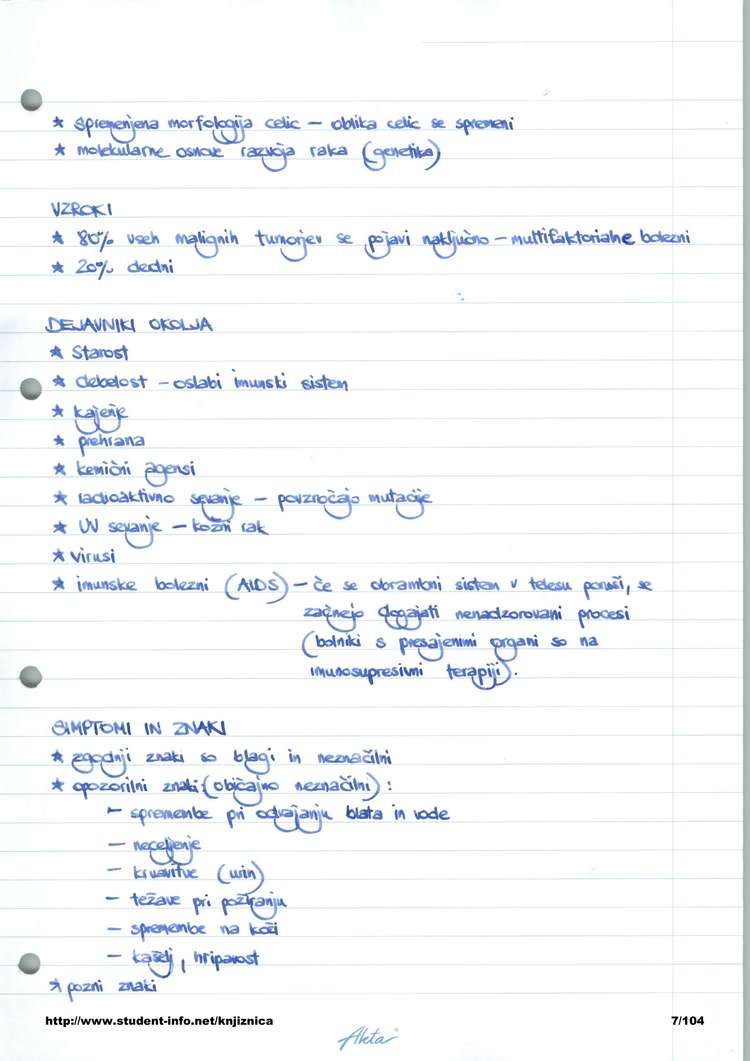 * spremenjena morfologija celic – oblika celic se spremeni
* molekularne osnove razvoja raka (genetika)
VZROKI
* 80% vseh malignih tumorjev se pojavi naključno – multifaktorialne bolezni
* 20% dedni
DEJAVNIKI OKOLJA
* Starost
* debelost – oslabi imunski sistem
* kajenje
* prehrana
* kemični agensi
* radioaktivno sevanje – povzročajo mutacije
* UV sevanje – kožni rak
* virusi
* imunske bolezni (AIDS) – če se obrambni sistem v telesu poruši, se
začnejo dogajati nenadzorovani procesi
(bolniki s presajenimi organi so na
imunosupresivni terapiji).
SIMPTOMI IN ZNAKI
* zgodnji znaki so blagi in neznačilni
* opozorilni znaki (običajno neznačilni) :
– spremembe pri odvajanju blata in vode
– neceljenje
– krvavitve (urin)
– težave pri požiranju
– spremembe na koži
– kašelj, hripavost
* pozni znaki
http://www.student-info.net/knjiznica 7/104
Akta